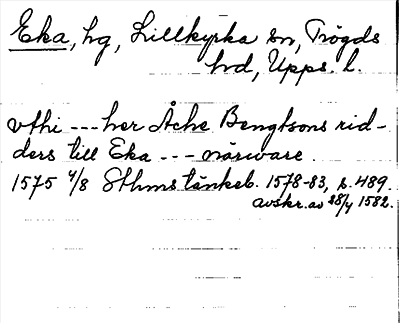 Eka, hg, Lillkyrka sn, Trögds
hd, Upps. l.
vthi --- her Åche Bengtsons rid-
ders till Eka --- närware.
1575 4/8 Sthms tänkeb. 1578-83, s. 489.
avskr. av 28/4 1582.